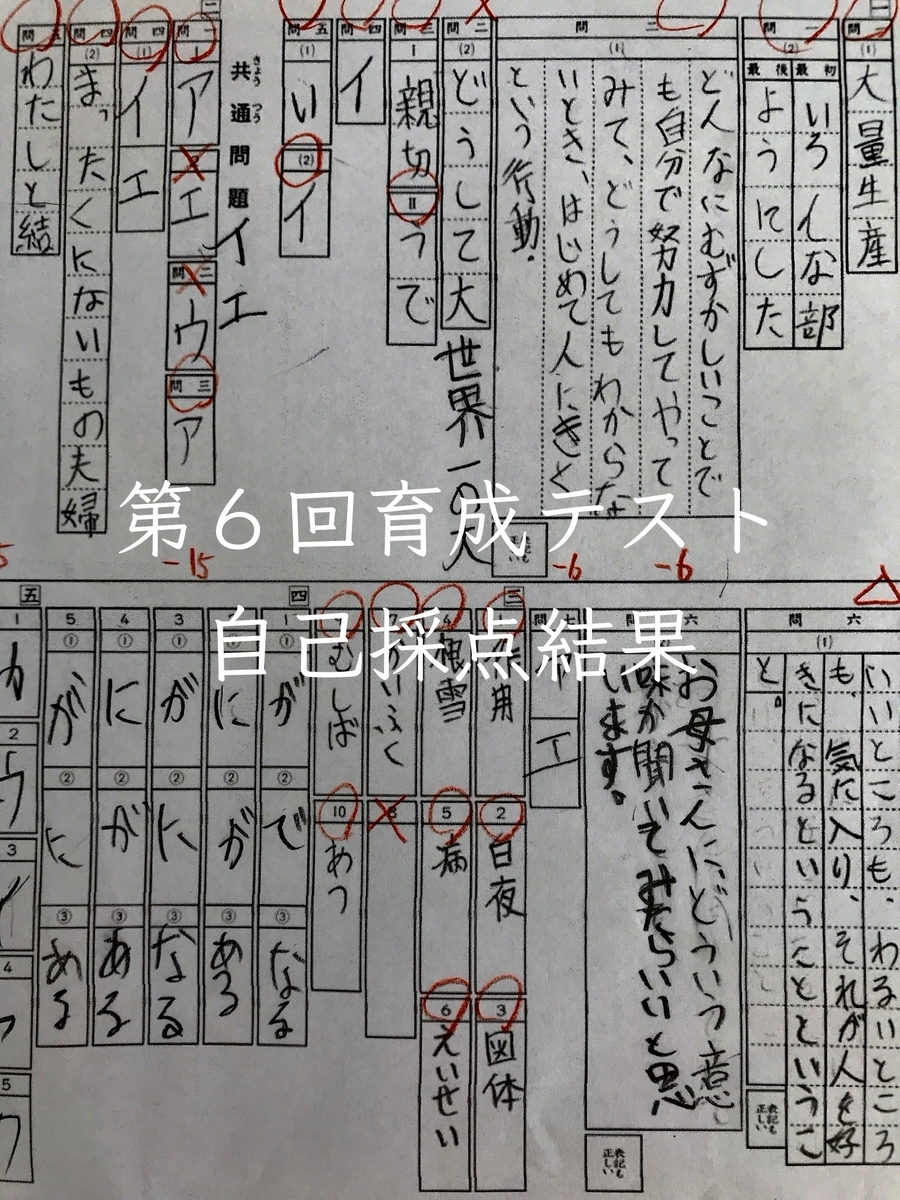 第6回育成テスト
自己採点結果
一
問一
(1)
大量生産
問二
(2)
最初
いろんな部
最後
ようにした
問三
(1)
どんなにむずかしいことで
も自分で努力してやって
みて、どうしてもわからな
いとき、はじめて人にきく
という行動.
表記も正しい
-6
-6
問二
(2)
どうして大
世界一の大
問三
Ⅰ
親切
Ⅱ
うで
問四
イ
問五
(1)
い
(2)
イ
二
共通問題
きょうつう
イ
エ
問一
ア
エ
問二
ウ
問三
ア
-15
問四
(1)
イ
エ
問四
(2)
まったくにないもの夫婦
わたしと結
問六
(1)
いいところも、わるいところ
も、気に入り、それが人を好
きになるということというこ
と。
表記も正しい
問六
お母さんにどういう意
味か聞いてみたらいいと思
います。
表記も正しい
問七
エ
三
2
白夜
3
図体
4
雪
5
病
6
えいせい
8
むしば
10
あつ
四
1
①
が
②
で
③
なる
①
に
②
が
③
ある
3
①
が
②
に
③
なる
4
①
に
②
が
③
ある
5
①
が
②
に
③
ある
五
1
カ
2
ウ
3
イ
4
5
ウ